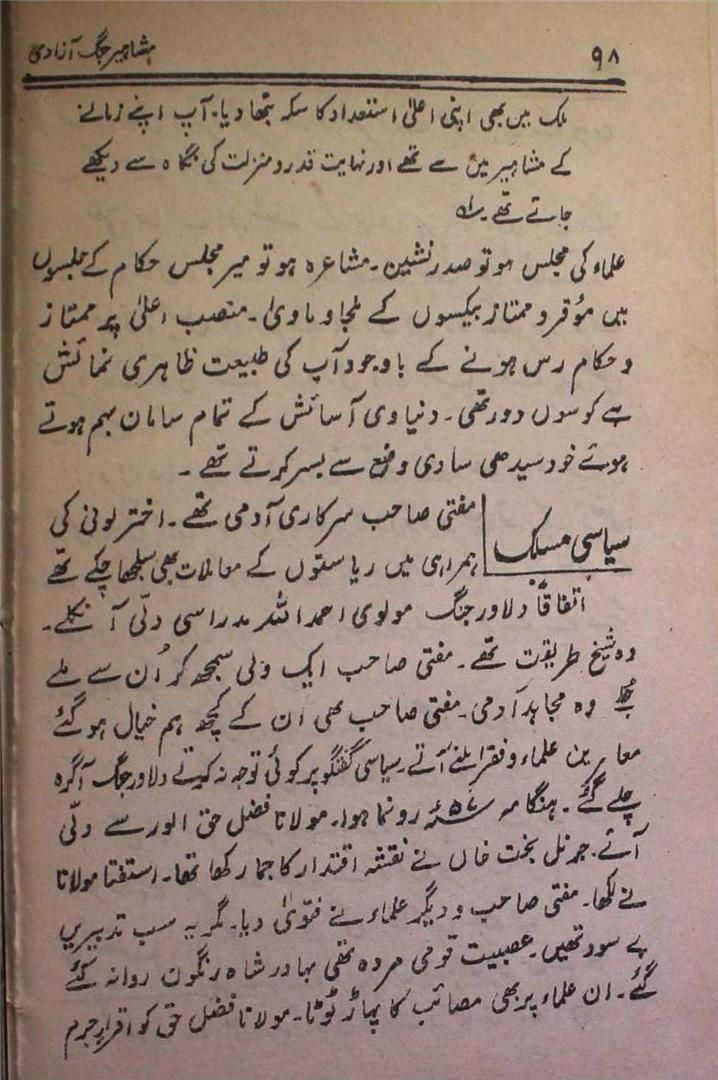 ۹۸
مشاہیر جنگ آزادی
ملک میں بھی اپنی اعلیٰ استعداد کا سکہ بٹھا دیا۔ آپ اپنے زمانے
کے مشاہیر میں سے تھے اور نہایت قدر و منزلت کی نگاہ سے دیکھے
جاتے تھے۔
علماء کی مجلس ہو تو صدر نشین۔ مشاعرہ ہو تو میر مجلس حکام کے جلسوں
میں مؤقر و ممتاز بیکسوں کے ملجا و ماویٰ۔ منصب اعلیٰ پر ممتاز
و حکام رس ہونے کے باوجود آپ کی طبیعت ظاہری نمائش
سے کوسوں دور تھی۔ دنیاوی آسائش کے تمام سامان بہم ہوتے
ہوئے خود سیدھی سادی وضع سے بسر کرتے تھے۔
سیاسی مسلک
مفتی صاحب سرکاری آدمی تھے۔ اختر لونی کی
ہمراہی میں ریاستوں کے معاملات بھی سلجھا چکے تھے
اتفاقاً دلاور جنگ مولوی احمد اللہ مدراسی دلّی آ نکلے۔
وہ شیخ طریقت تھے۔ مفتی صاحب ایک ولی سمجھ کر اُن سے ملے
وہ مجاہد آدمی۔ مفتی صاحب بھی ان کے کچھ ہم خیال ہو گئے
معاصرین علماء و فقرا ملنے آتے۔ سیاسی گفتگو پر کوئی توجہ نہ کرتے دلاور جنگ آگرہ
چلے گئے۔ ہنگامہ ۵۷ء رونما ہوا۔ مولانا فضل حق الور سے دلّی
آئے۔ جرنل بخت خاں نے نقشہ اقتدار کا جما رکھا تھا۔ استفتا مولانا
نے لکھا۔ مفتی صاحب و دیگر علماء نے فتویٰ دیا۔ مگر یہ سب تدبیریں
بے سود تھیں۔ عصبیت قومی مردہ تھی بہادر شاہ رنگون روانہ کئے
گئے۔ ان علماء پر بھی مصائب کا پہاڑ ٹوٹا۔ مولانا فضل حق کو اقرار جرم